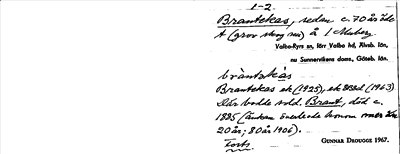 1-2.
Brantekas, sedan c. 70 år öde
t (grov skog nu) å 1 Moberg
Valbo-Ryrs sn, förr Valbo hd, Älvsb. län,
nu Sunnervikens doms, Göteb. län.
bràntəkàs
Brantekas ek (1925), ek (1963)
Där bodde sold. Brant, död c.
1885 (änkan överlevde honom mer än
20 år; 80 år 1906).
Forts.
GUNNAR DROUGGE 1967.